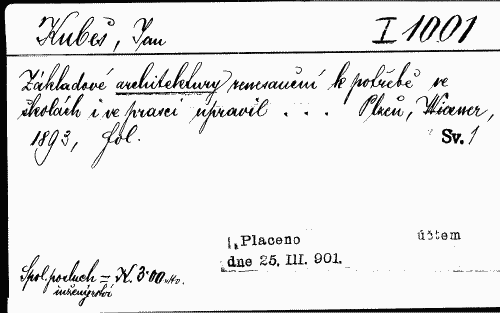 Kubeš, Jan I 1001
Základové architektury renesanční k potřebě ve
školách i ve praxi upravil . . . Plzeň, Wiesner,
1893, fol. Sv. 1
Placeno účtem
dne 25. III. 901.
Spol. posluch =
inženýrství